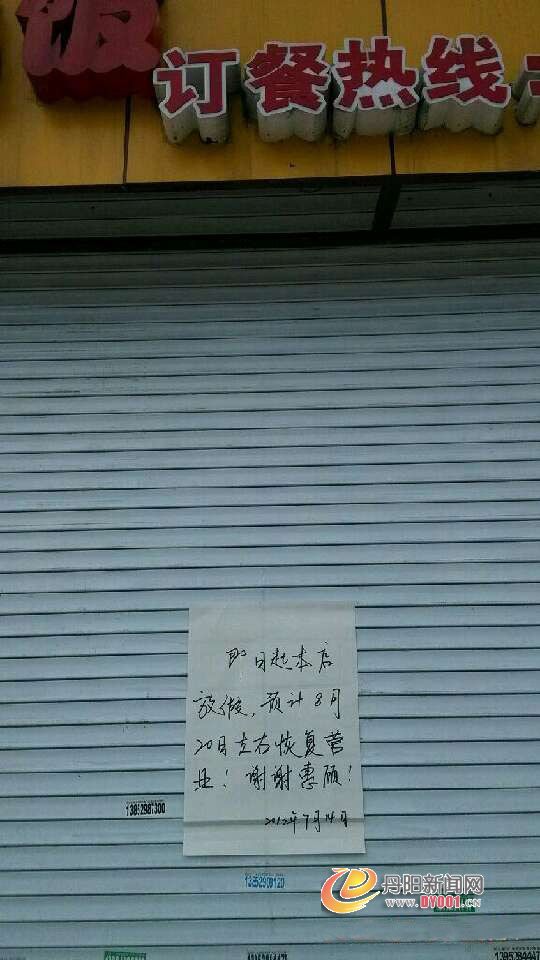 饭
订餐热线
即日起本店
放假,预计8月
20日左右恢复营
业!谢谢惠顾!
2012年7月14日
13852987300
丹阳新闻网
www.DY001.cn